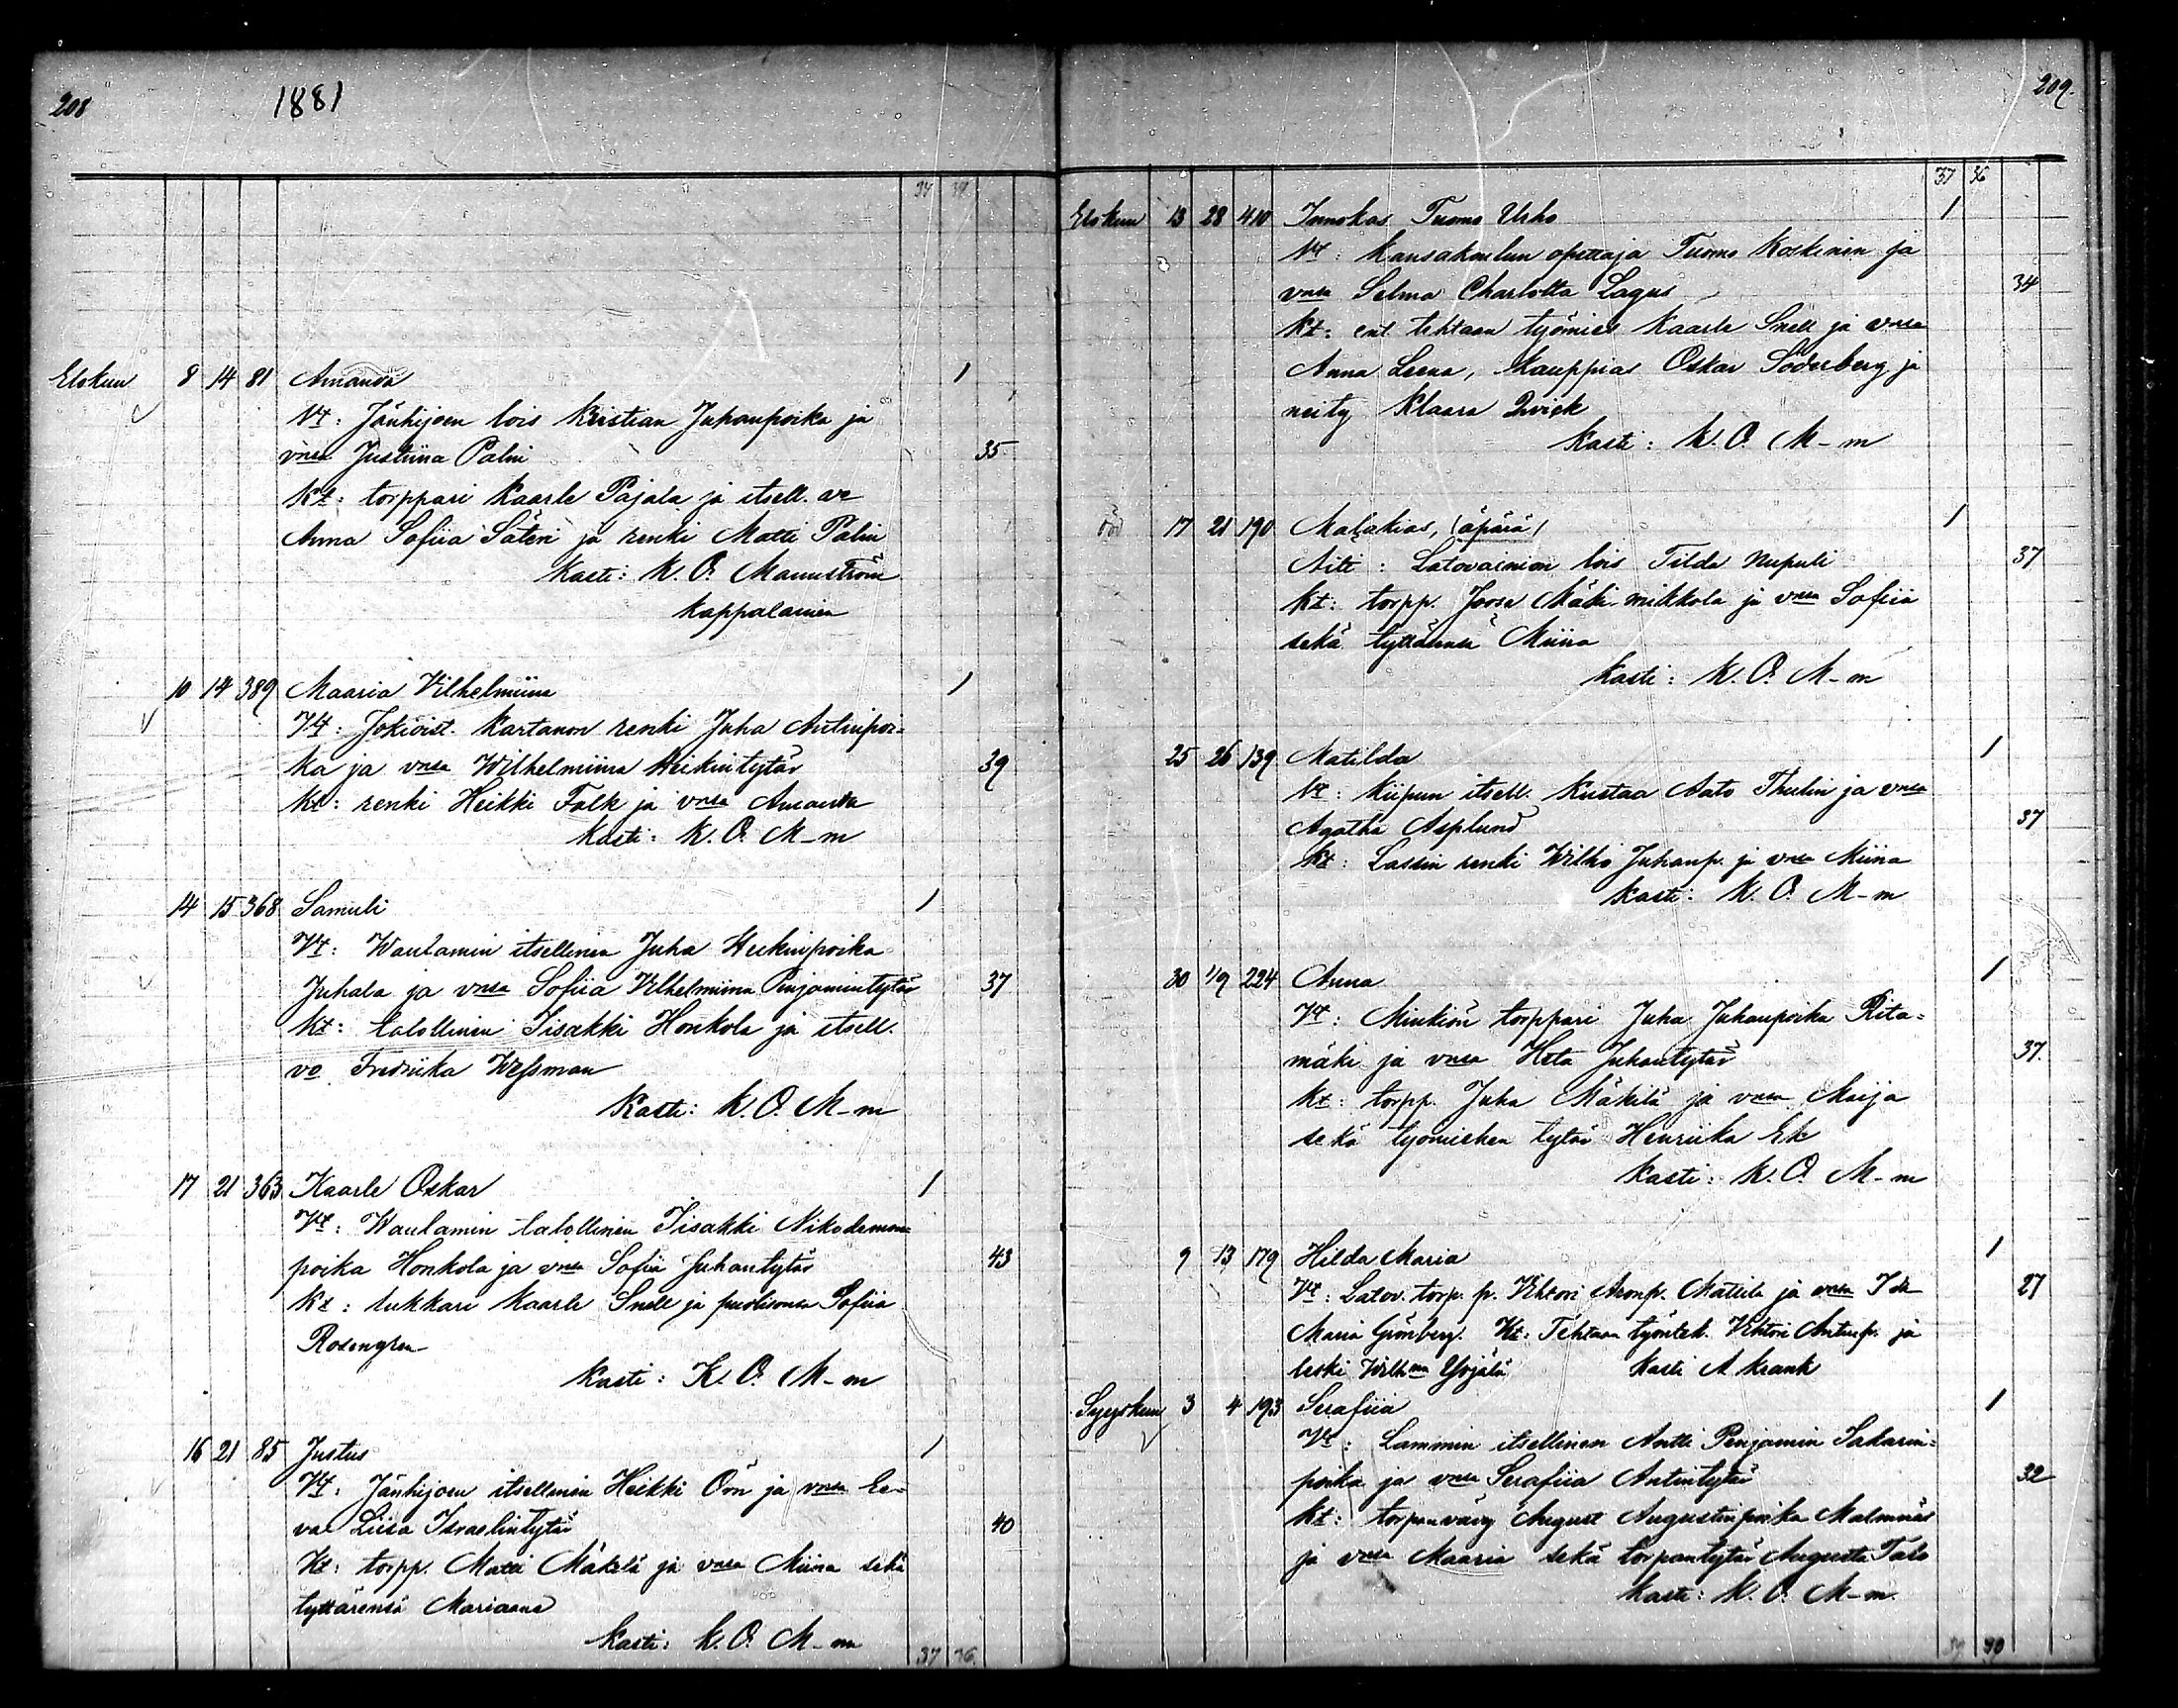 208
1881
37
Elokuu 8 14 81 Amanda 1
Vt: Jänhijoen lois Kristian Juhanpoika ja
vnsa Justiina Palin 35
Kt: torppari Kaarle Pajala ja itsell. vo
Anna Sofiia Säteri ja renki Matti Palin
Kasti: K. O. Mannström
Kappalainen
10 14 389 Maaria Vilhelmiina 1
Vt: Jokioist. Kartanon renki Juha Antinpoi-
ka ja vnsa Wilhelmiina Heikintytär 39
Kt: renki Heikki Falk ja vnsa Amanda
Kasti: K. O. M-m
14 15 368 Samuli 1
Vt: Waulamin itsellinen Juha Heikinpoika
Juhala ja vnsa Sofiia Vilhelmiina Penjamintytär 37
Kt: talollinen Iisakki Honkola ja itsell.
vo Fredriika Wessman
Kasti: K. O. M-m
17 21 363 Kaarle Oskar 1
Vt: Waulamin talollinen Iisakki Nikodemun
poika Honkola ja vnsa Sofiia Juhantytär 43
Kt: lukkari Kaarle Snell ja puolisonsa Sofiia
Rosengren
Kasti: K. O. M-m
16 21 85 Justus 1
Vt: Jänhijoen itsellinen Heikki Öön ja vnsa Ee-
va Liisa Israelintytär 40
Kt: torpp. Matti Mäkelä ja vnsa Miina sekä
tyttärensä Mariaana
Kasti: K. O. M-m
37 36
209.
37 36
Elokuu 13 28 410 Innokas Tuomo Urho 1
Vt: Kansakoulun opettaja Tuomo Koskinen ja
vnsa Selma Charlotta Lagus 34
Kt: ent. tehtaan työmies Kaarle Snell ja vnsa
Anna Leena, Kauppias Oskar Söderberg ja
neity Klaara Qvick
Kasti: K. O. M-m
17 21 190 Malakias, (äpärä) 1
Äiti: Latovainion lois Tilda Nupuli 37
Kt: torpp. Joose Mäki-mikkola ja vnsa Sofiia
sekä tyttärensä Miina
Kasti: K. O. M-m
25 26 139 Matilda 1
Vt: Kiipun itsell. Kustaa Aato Thulin ja vnsa
Agatha Asplund 37
Kt: Lassin renki Wilho Juhanp. ja vnsa Miina
Kasti: K. O. M-m
30 1/9 224 Anna 1
Vt: Minkiön torppari Juha Juhanpoika Rita-
mäki ja vnsa Heta Juhantytär 37.
Kt: torpp. Juha Mäkilä ja vnsa Maija
sekä työmiehen tytär Henriika Ek
Kasti: K. O. M-m
9 13 179 Hilda Maria 1
Vt: Latov. torp. p. Vihtori Aronp. Mattila ja vnsa Ida 27
Maria Grönberg. Kt: Tehtaan työntek. Vihtori Antinp. ja
leski Wilhna Yrjälä Kasti A Krank
Syyskuu 3 4 193 Serafiia 1
Vt: Lammin itsellinen Antti Penjamin Sakarin-
poika ja vnsa Serafiia Antintytär 32
Kt: torpanvävy August Augustinpoika Malmnäs
ja vnsa Maaria sekä torpantytär Augusta Talo
Kasti: K. O. M-m.